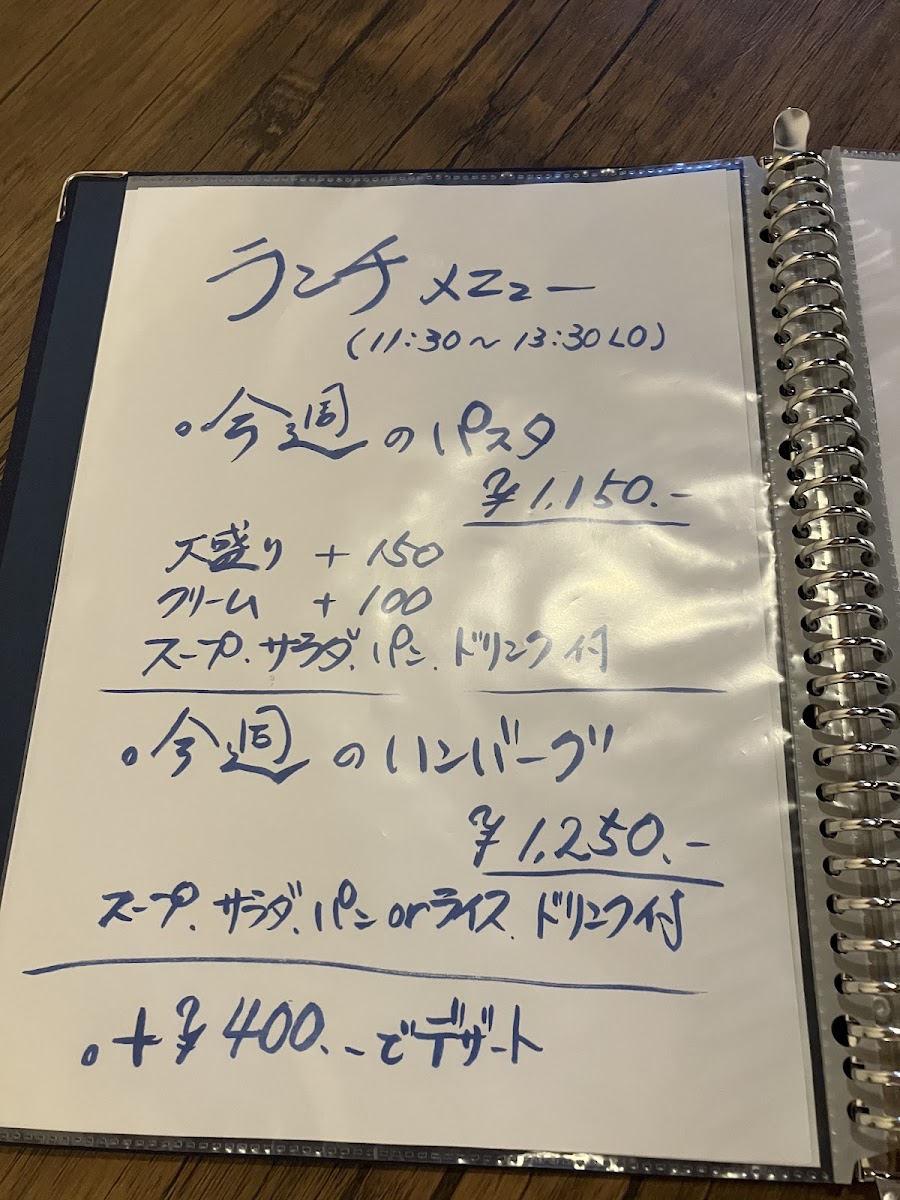 ランチ メニュー
(11:30～13:30LO)
○今週のパスタ
¥1,150.-
大盛り +150
クリーム +100
スープ、サラダ、パン、ドリンク付
○今週のハンバーグ
¥1,250.-
スープ、サラダ、パンorライス、ドリンク付
○+¥400.-でデザート